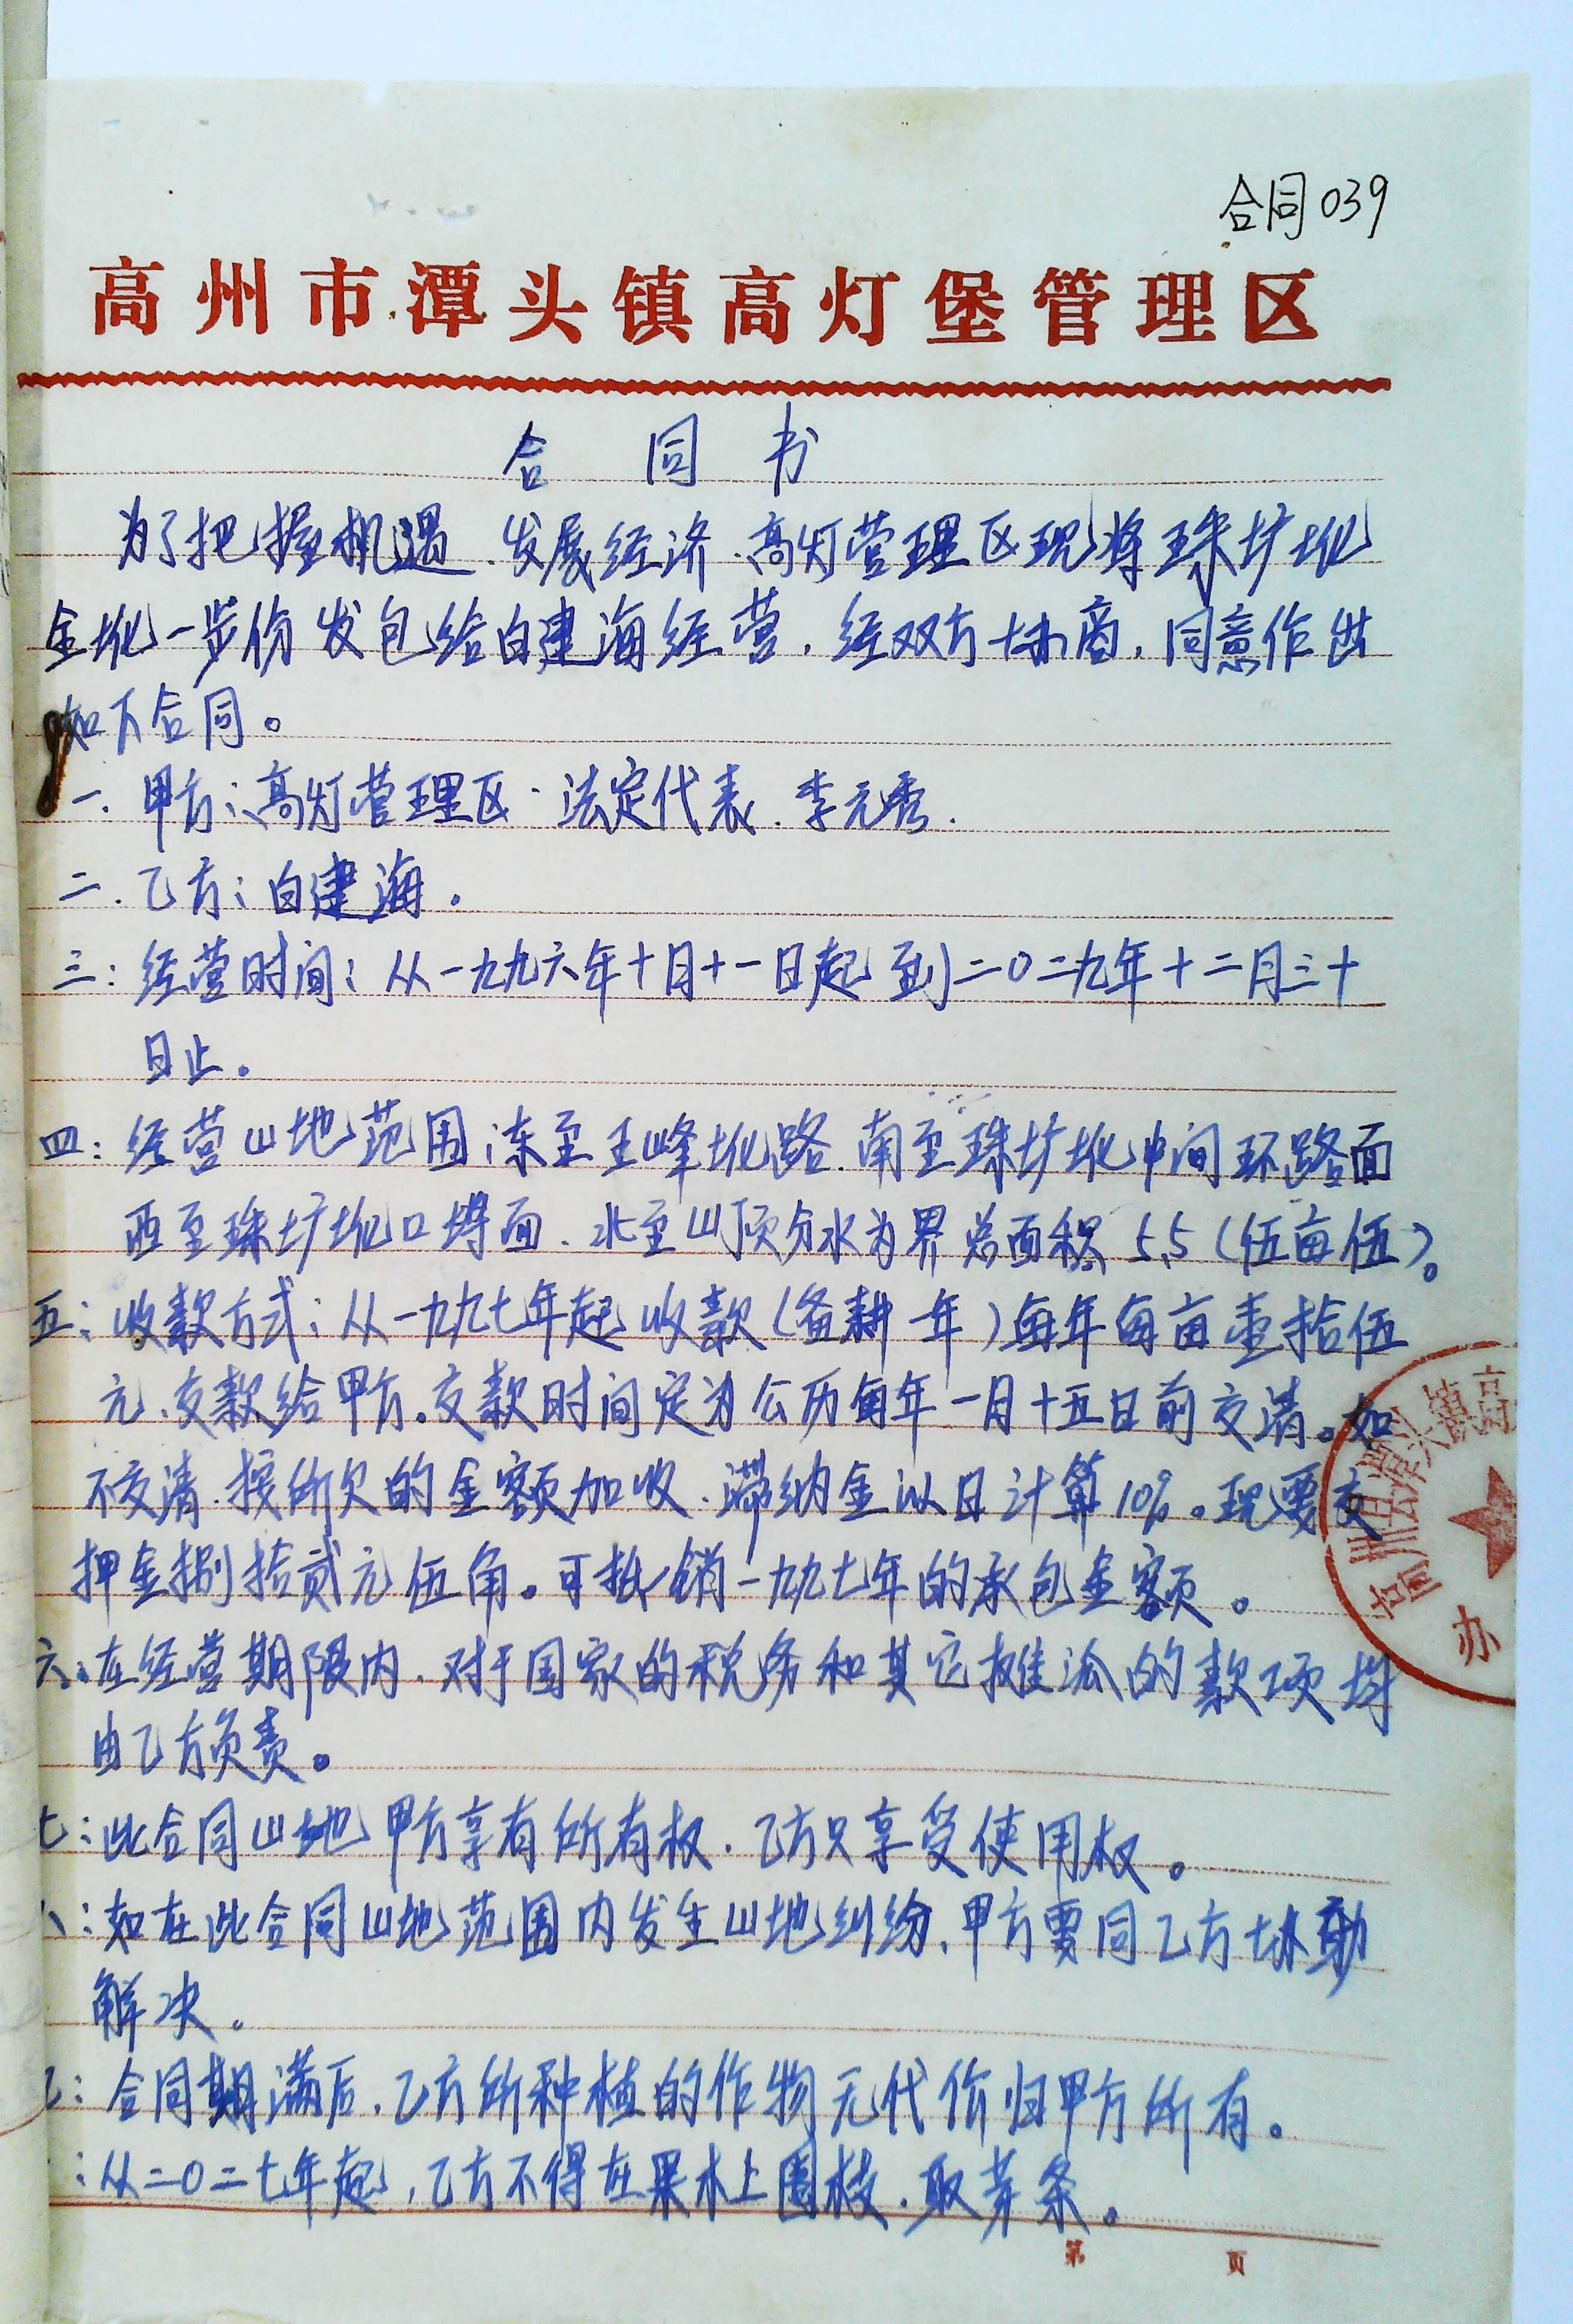 合同039
高州市潭头镇高灯堡管理区
合同书
为了把握机遇.发展经济.高灯管理区现将珠圹坬
全坬一步份发包给白建海经营.经双方协商.同意作出
如下合同。
一.甲方:高灯管理区.法定代表.李元秀.
二.乙方:白建海.
三:经营时间:从一九九六年十月十一日起到二0二九年十二月三十
日止。
四:经营山地范围:东至王峰坬路.南至珠圹坬中间环路面
西至珠圹坬口塆面.北至山顶分水为界总面积5.5(伍亩伍)。
五:收款方式:从一九九七年起收款(备耕一年)每年每亩壹拾伍
元.交款给甲方。交款时间定为公历每年一月十五日前交清。如
不交清.按所欠的金额加收.滞纳金以日计算10%。现要交
押金捌拾贰元伍角。可抵销一九九七年的承包金额。
六:在经营期限内.对于国家的税务和其它摊派的款项均
由乙方负责。
七:此合同山地甲方享有所有权.乙方只享受使用权。
八:如在此合同山地范围内发生山地纠纷.甲方要同乙方协助
解决。
九:合同期满后.乙方所种植的作物无代价归甲方所有。
:从二0二七年起,乙方不得在果木上圈枝.取芽条。
高州县潭头镇高
办
第 页